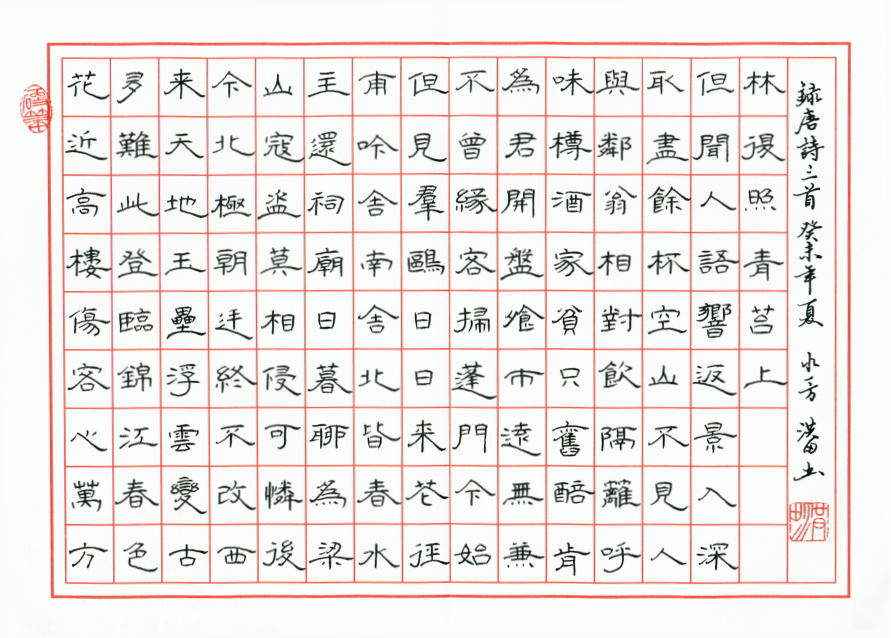 花近高樓傷客心萬方
多難此登臨錦江春色
来天地玉壘浮雲變古
今北極朝廷終不改西
山寇盗莫相侵可憐後
主還祠廟日暮聊為梁
甫吟舍南舍北皆春水
但見羣鷗日日来花徑
不曾緣客掃蓬門今始
為君開盤飧市遠無兼
味樽酒家貧只舊醅肯
與鄰翁相對飲隔籬呼
取盡餘杯空山不見人
但聞人語響返景入深
林復照青苔上
録唐詩三首 癸未年夏